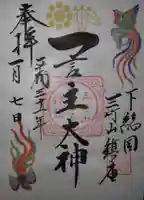 下総国
三竹山鎮座
一言主大神
平成三十一年
奉拝一月七日